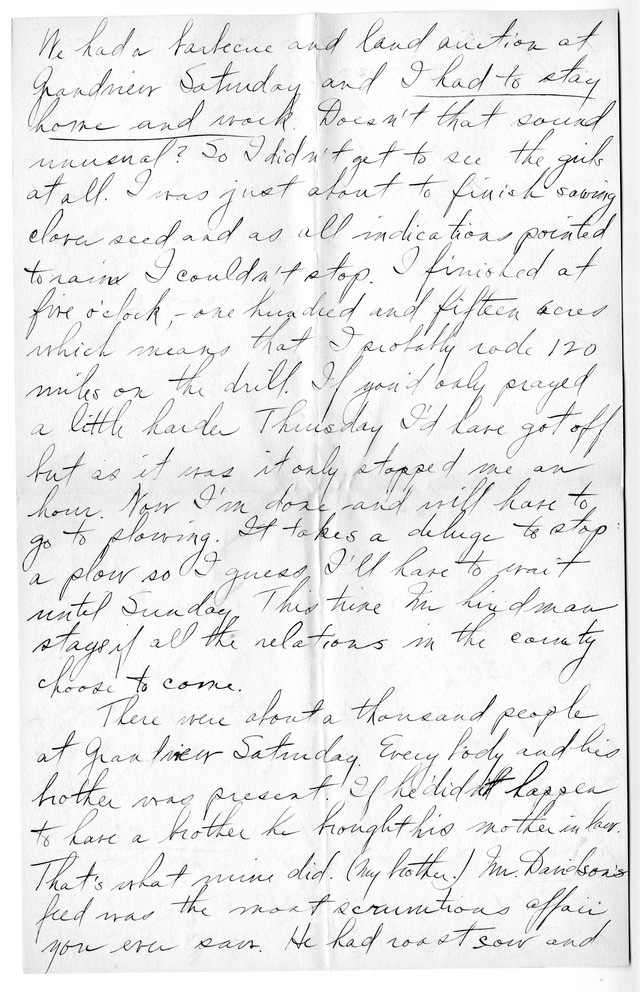 We had a barbecue and land auction at
Grandview Saturday and I had to stay
home and work. Doesn't that sound
unusual? So I didn't get to see the girls
at all. I was just about to finish sowing
clover seed and as all indications pointed
to rain I couldn't stop. I finished at
five o'clock, - one hundred and fifteen acres
which means that I probably rode 120
miles on the drill. If you'd only prayed
a little harder Thursday I'd have got off
but as it was it only stopped me an
hour. Now I'm done and will have to
go to plowing. It takes a deluge to stop
a plow so I guess I'll have to wait
until Sunday. This time the hired man
stays if all the relations in the county
choose to come.
There were about a thousand people
at Grandview Saturday. Everybody and his
brother was present. If he didn't happen
to have a brother he brought his mother in law.
That's what mine did. (My brother.) Mr. Davidson's
feed was the most scrumtious affair
you ever saw. He had roast sow and